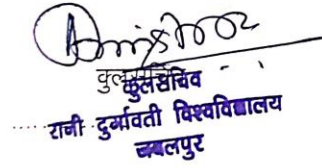 कुलसचिव
कुलसचिव
रानी दुर्गावती विश्वविद्यालय
जबलपुर